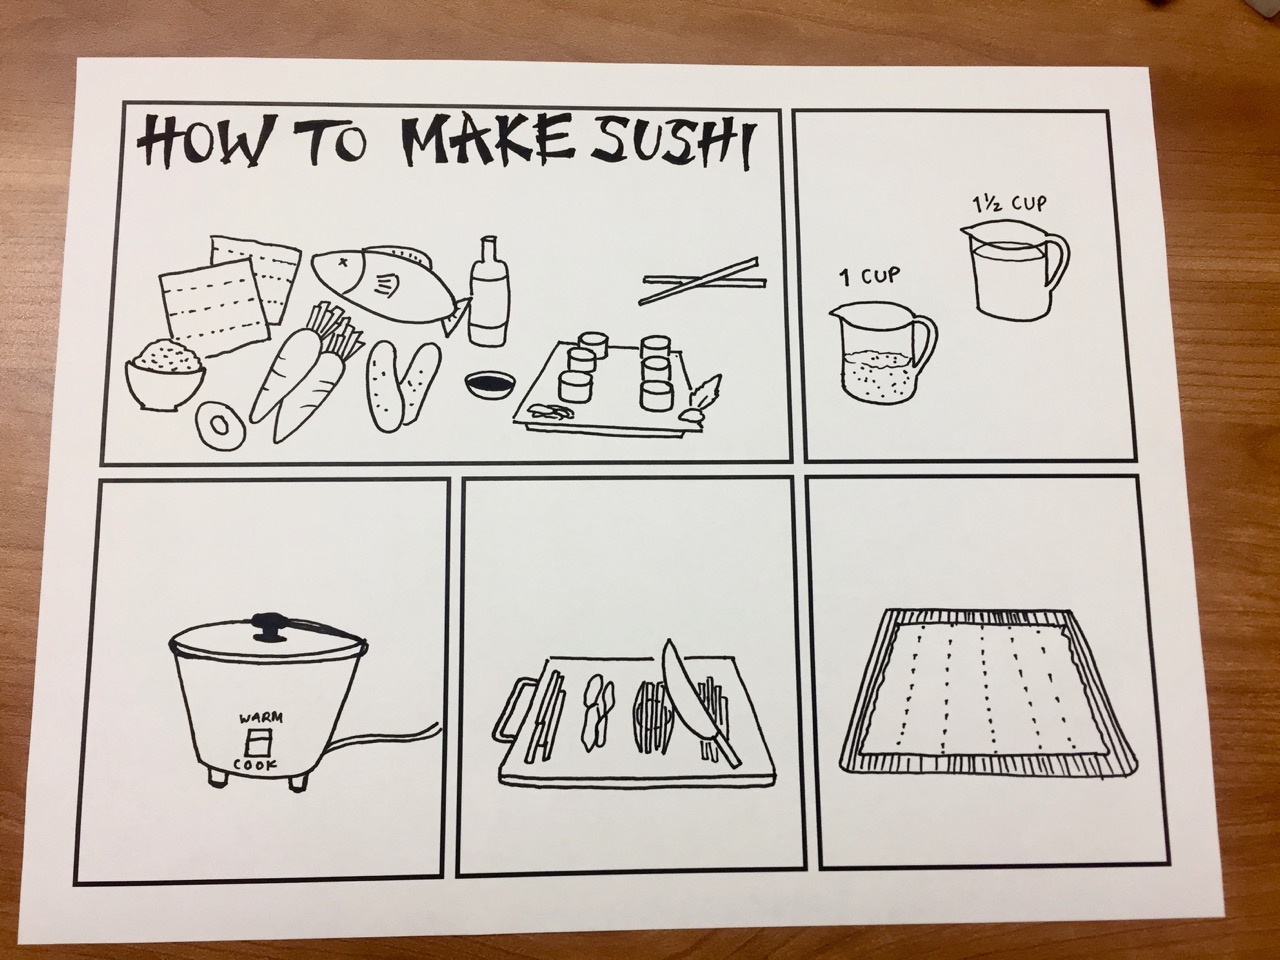 HOW TO MAKE SUSHI
1 CUP
1½ CUP
WARM
COOK